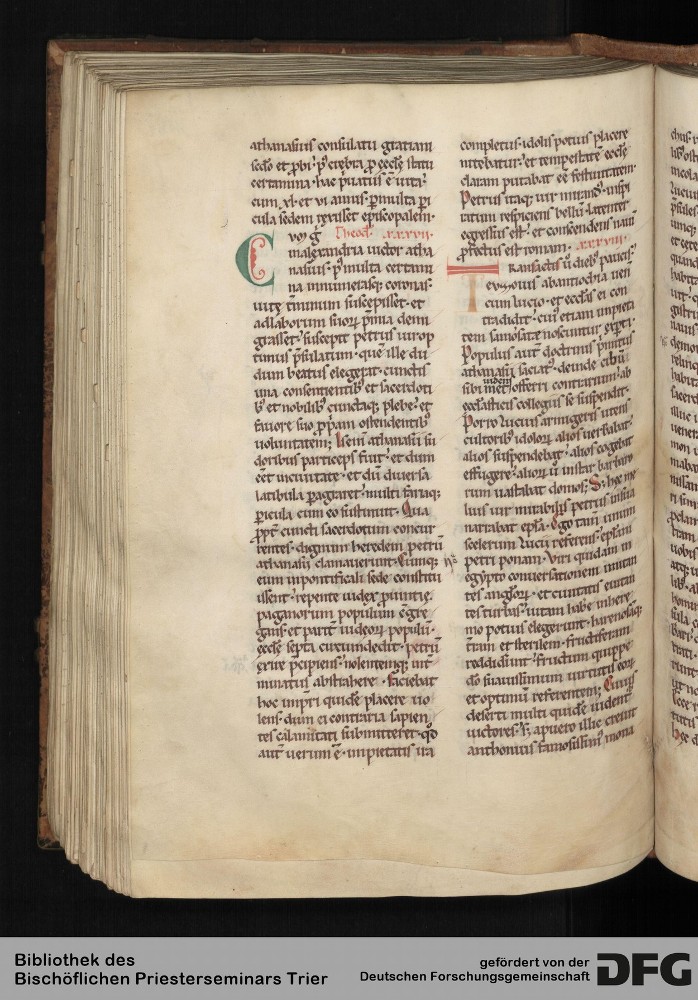 athanasius consulatu gratiani
scđo et probi. p̄ crebra pro ecclę statu
certamina. hac priuatus ē uita.
cum xl. et vi annis. p̄multa pi
cula sedem rexisset episcopalem.
Theođ. xxxvii.
malexandria uictor atha
nasius. p̄ multa certami
na innumerasq; coronas.
uitę t̄minum suscepisset. et
ad laborum suorꝝ p̄mia demi
grasset. suscepit petrus uir op
timus p̄sulatum. quē ille du
dum beatus elegerat. cunctis
una consentientib; et sacerdoti
b; et nobilib; cunctaq; plebe. et
fauore suo p̄pam ostendentib;
uoluntatem; Is em̄ athanasii su
doribus particeps fuit. et dum
eēt inciuitate. et dū diuersa
latibula pagraret. multa farraq;
picula cum eo sustinuit. Qua
ppt̄ cuncti sacerdotum concur
rentes. dignum heredem petrū
athanasii clamauerunt. Cumq;
eum inpontificali sede constitu
issent. repente iudex prouintię.
paganorum populum ēgre
gans. et parit̄ iudeorꝝ populū.
ecclę septa circundedit. petrū
exire p̄cipiens. nolentemq; int̄
minatus abstrahere. faciebat
hoc imp̄ri quidē placere uo
lens. dum ei contraria sapien
tes calamitati submitteret. qđ
aut̄ uerum ē. impietatis ira
completus. idolis potius placere
nitebatur. et tempestatē ecclę
claram putabat eē festiuitatem.
Petrus itaq; uir mirandꝰ. inspi
ratum respiciens bellū. latenter
egressus est. et conscendens nauī
profectus est romam. xxxviii.
Transactis ū dieb; paucis.
euzoius abantiochia uen̄
cum lucio. et ecclas ei con
tradidit. cuiꝰ etiam impieta
tem samosatē noscuntur exp̄ti.
Populus aut̄ doctrinis p̄nutus
athanasii faciatꝰ. deinde cibū
sibimet uidens offerri contrarium. ab
ecclasticis collegiis se suspendit.
Porro lucius armigeris utens
cultorib; idolorꝝ. alios uerbabat.
alios suspendebat. alios cogebat
effugere. aliorꝝ ū instar barbaro
rum uastabat domos; S; hęc me
lius uir mirabilis petrus insua
narrabat epl̄a. Ego tam̄ unum
scelerum lucii referens. epl̄am
petri ponam. Viri quidam in
egypto conuersationem imitan
tes anglorꝝ. et ciuitatis euitan
tes turbas. uitam habē inhere
mo potius elegerunt. harenosāq;
t̄ram et sterilem. fructiferam
reddidert. fructum quippe
dō suauissimum uirtutis eorꝝ
et optimū referentem; Cuius
deserti multi quidē uident̄
uictores. s; apuero illic creuit
anthonius famosissimꝰ mona
Bibliothek des
Bischöflichen Priesterseminars Trier
gefördert von der
Deutschen Forschungsgemeinschaft
DFG